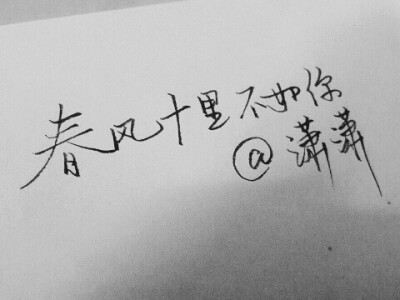 春风十里不如你
@潇潇